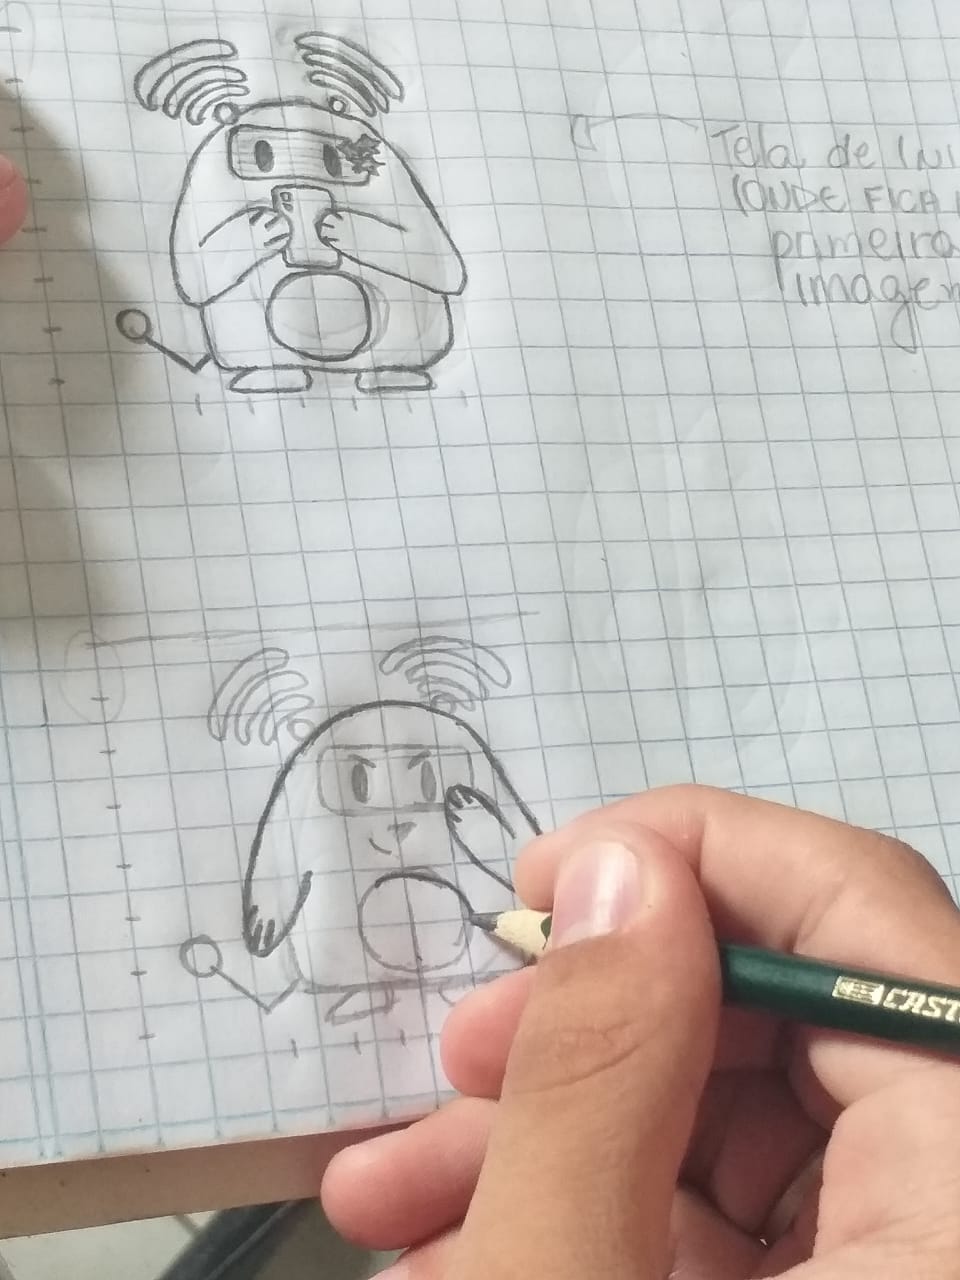 Tela de INI
(ONDE FICA
primeira
imagem
CAST